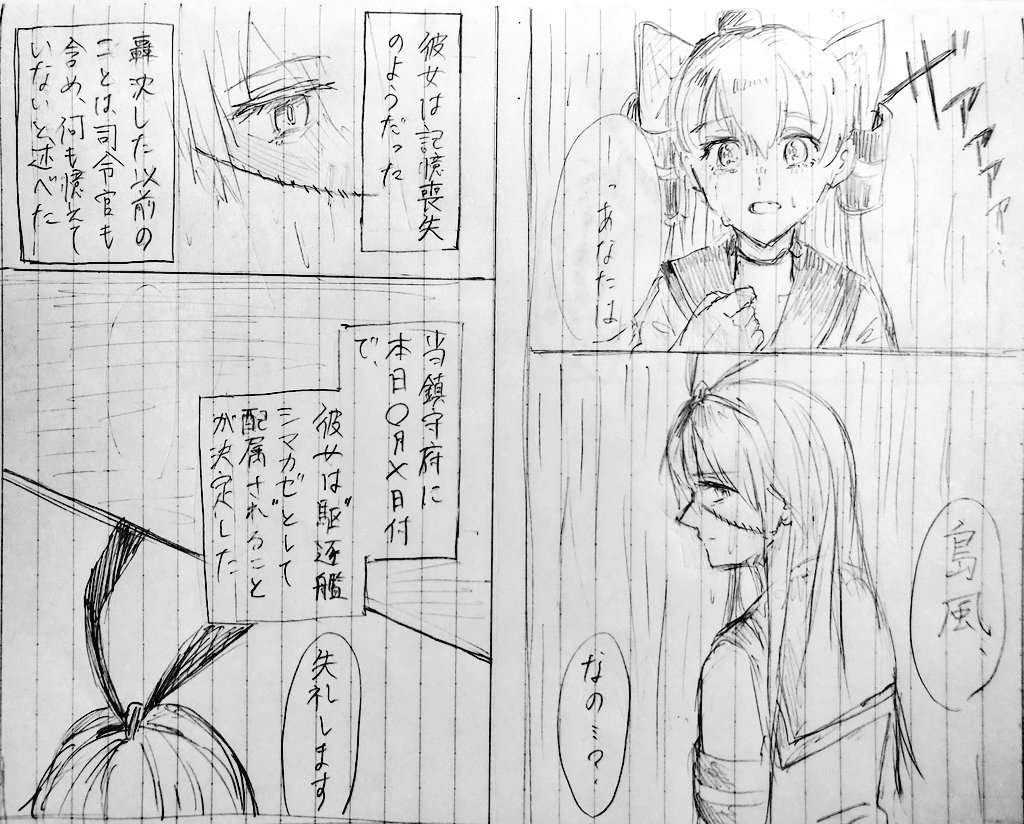 ザァァァァ…
―っあなたは
島風、
なの…?
彼女は記憶喪失
のようだった
轟沈した以前の
ことは、司令官も
含め、何も憶えて
いないと述べた―
当鎮守府に
本日〇月×日付
で、
彼女は駆逐艦
シマカゼとして
配属されること
が決定した
失礼します